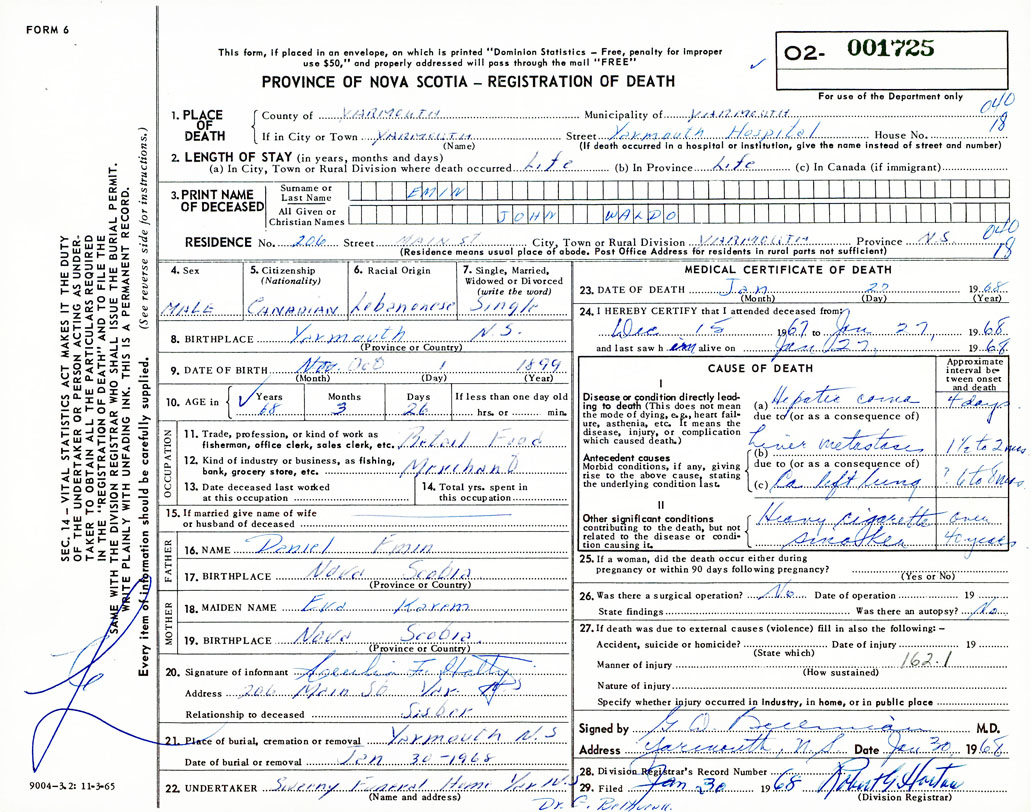 FORM 6
This form, if placed in an envelope, on which is printed "Dominion Statistics – Free, penalty for improper
use $50," and properly addressed will pass through the mail "FREE"
PROVINCE OF NOVA SCOTIA – REGISTRATION OF DEATH
O2- 001725
For use of the Department only
040
18
1. PLACE OF DEATH
County of YARMOUTH Municipality of YARMOUTH
If in City or Town YARMOUTH Street Yarmouth Hospital House No.
(Name) (If death occurred in a hospital or institution, give the name instead of street and number)
2. LENGTH OF STAY (in years, months and days)
(a) In City, Town or Rural Division where death occurred Life (b) In Province Life (c) In Canada (if immigrant)
3. PRINT NAME OF DECEASED
Surname or Last Name EMIN
All Given or Christian Names JOHN WALDO
040
18
RESIDENCE No. 206 Street MAIN ST City, Town or Rural Division YARMOUTH Province N.S.
(Residence means usual place of abode. Post Office Address for residents in rural parts not sufficient)
4. Sex
MALE
5. Citizenship (Nationality)
CANADIAN
6. Racial Origin
Lebanonese
7. Single, Married, Widowed or Divorced (write the word)
Single
8. BIRTHPLACE Yarmouth N.S.
(Province or Country)
9. DATE OF BIRTH Nov. Oct 1 1899
(Month) (Day) (Year)
10. AGE in Years 68 Months 3 Days 26 If less than one day old hrs. or min.
OCCUPATION
11. Trade, profession, or kind of work as fisherman, office clerk, sales clerk, etc. Retail Food
12. Kind of industry or business, as fishing, bank, grocery store, etc. Merchant
13. Date deceased last worked at this occupation
14. Total yrs. spent in this occupation
15. If married give name of wife or husband of deceased
FATHER
16. NAME Daniel Emin
17. BIRTHPLACE Nova Scotia
(Province or Country)
MOTHER
18. MAIDEN NAME Eva Karem
19. BIRTHPLACE Nova Scotia
(Province or Country)
20. Signature of informant
Address 206 Main St Yar. NS
Relationship to deceased Sister
21. Place of burial, cremation or removal Yarmouth N.S
Date of burial or removal Jan 30-1968
22. UNDERTAKER Sweeny Funeral Home Yar NS
(Name and address)
MEDICAL CERTIFICATE OF DEATH
23. DATE OF DEATH Jan 27 1968
(Month) (Day) (Year)
24. I HEREBY CERTIFY that I attended deceased from:
Dec 15 1967 to Jan 27, 1968
and last saw him alive on Jan 27, 1968
CAUSE OF DEATH
Approximate interval between onset and death
I
Disease or condition directly leading to death (This does not mean the mode of dying, e.g., heart failure, asthenia, etc. It means the disease, injury, or complication which caused death.)
(a) Hepatic coma 4 days
due to (or as a consequence of)
Antecedent causes
Morbid conditions, if any, giving rise to the above cause, stating the underlying condition last.
(b) Liver metastases 1½ to 2 mos
due to (or as a consequence of)
(c) Ca left lung ? 6 to 8 mos
II
Other significant conditions contributing to the death, but not related to the disease or condition causing it.
Heavy cigarette smoker over 40 years
25. If a woman, did the death occur either during pregnancy or within 90 days following pregnancy?
(Yes or No)
26. Was there a surgical operation? No Date of operation 19
State findings Was there an autopsy? No
27. If death was due to external causes (violence) fill in also the following: –
Accident, suicide or homicide? Date of injury 19
(State which)
Manner of injury 162.1
(How sustained)
Nature of injury
Specify whether injury occurred in Industry, in home, or in public place
Signed by M.D.
Address Yarmouth, N.S Date Jan 30 1968
28. Division Registrar's Record Number
29. Filed Jan 30 1968 Robert G Horton
(Division Registrar)
SEC. 14 – VITAL STATISTICS ACT MAKES IT THE DUTY
OF THE UNDERTAKER OR PERSON ACTING AS UNDER-
TAKER TO OBTAIN ALL THE PARTICULARS REQUIRED
IN THE "REGISTRATION OF DEATH" AND TO FILE THE
SAME WITH THE DIVISION REGISTRAR WHO SHALL ISSUE THE BURIAL PERMIT.
WRITE PLAINLY WITH UNFADING INK. THIS IS A PERMANENT RECORD.
Every item of information should be carefully supplied. (See reverse side for instructions.)
9004-3.2: 11-3-65